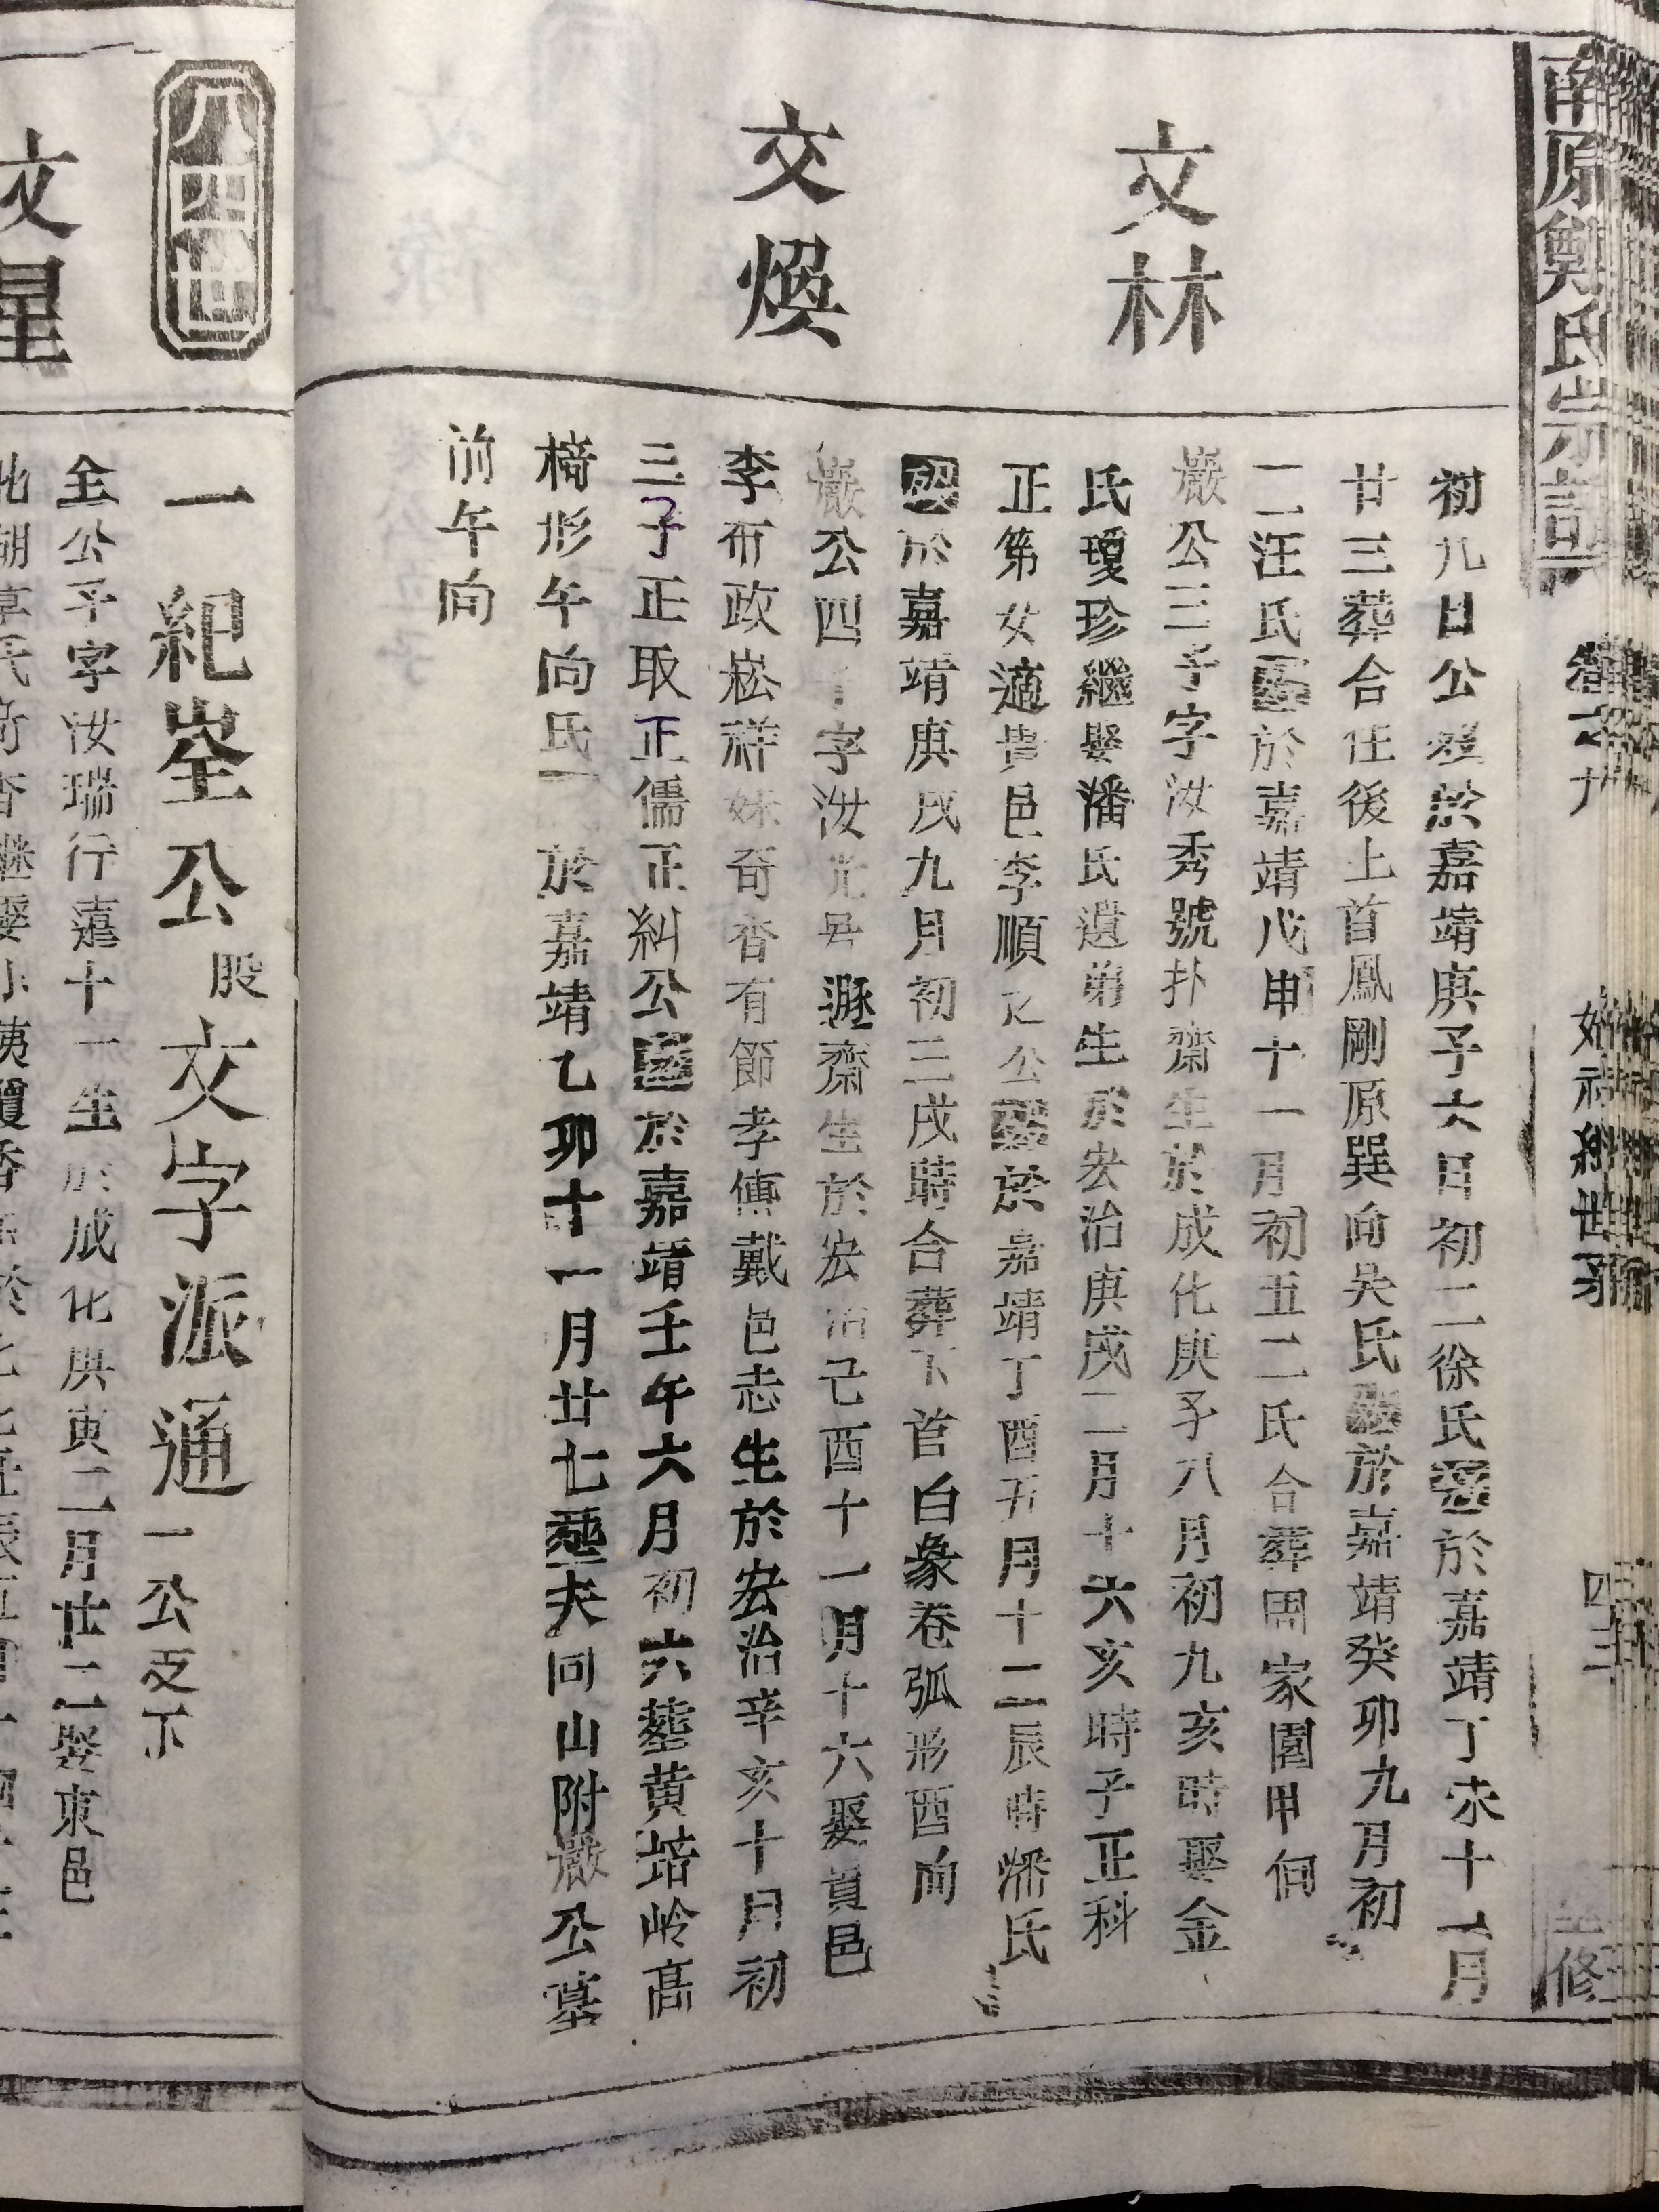 南原鄭氏宗譜
卷之九
始祖繼世系
四三
重修
初九日公歿於嘉靖庚子六日初二徐氏歿於嘉靖丁未十一月
廿三葬合住後上首鳳剛原巽向吳氏歿於嘉靖癸卯九月初
二汪氏歿於嘉靖戊申十一月初五二氏合葬周家園甲向
文林
巖公三子字汝秀號扑齋生於成化庚子八月初九亥時娶金
氏瓊珍繼娶潘氏遺弟生於宏治庚戌二月十六亥時子正科
正第女適貴邑李順之公歿於嘉靖丁酉五月十二辰時潘氏
歿於嘉靖庚戌九月初三戌時合葬下首白象卷弧形酉向
文煥
巖公四子字汝光号遯齋生於宏治己酉十一月十六娶貴邑
李布政崧祥妹奇香有節孝傳載邑志生於宏治辛亥十月初
三子正取正儒正糾公歿於嘉靖壬午六月初六塟黄培岭高
椅形午向氏 於嘉靖乙卯十一月廿七塟夫同山附巖公墓
前午向
八四世
一紀崟公股文字派通一公支下
文星
全公子字汝瑞行薳十一生於成化庚寅二月廿二娶東邑